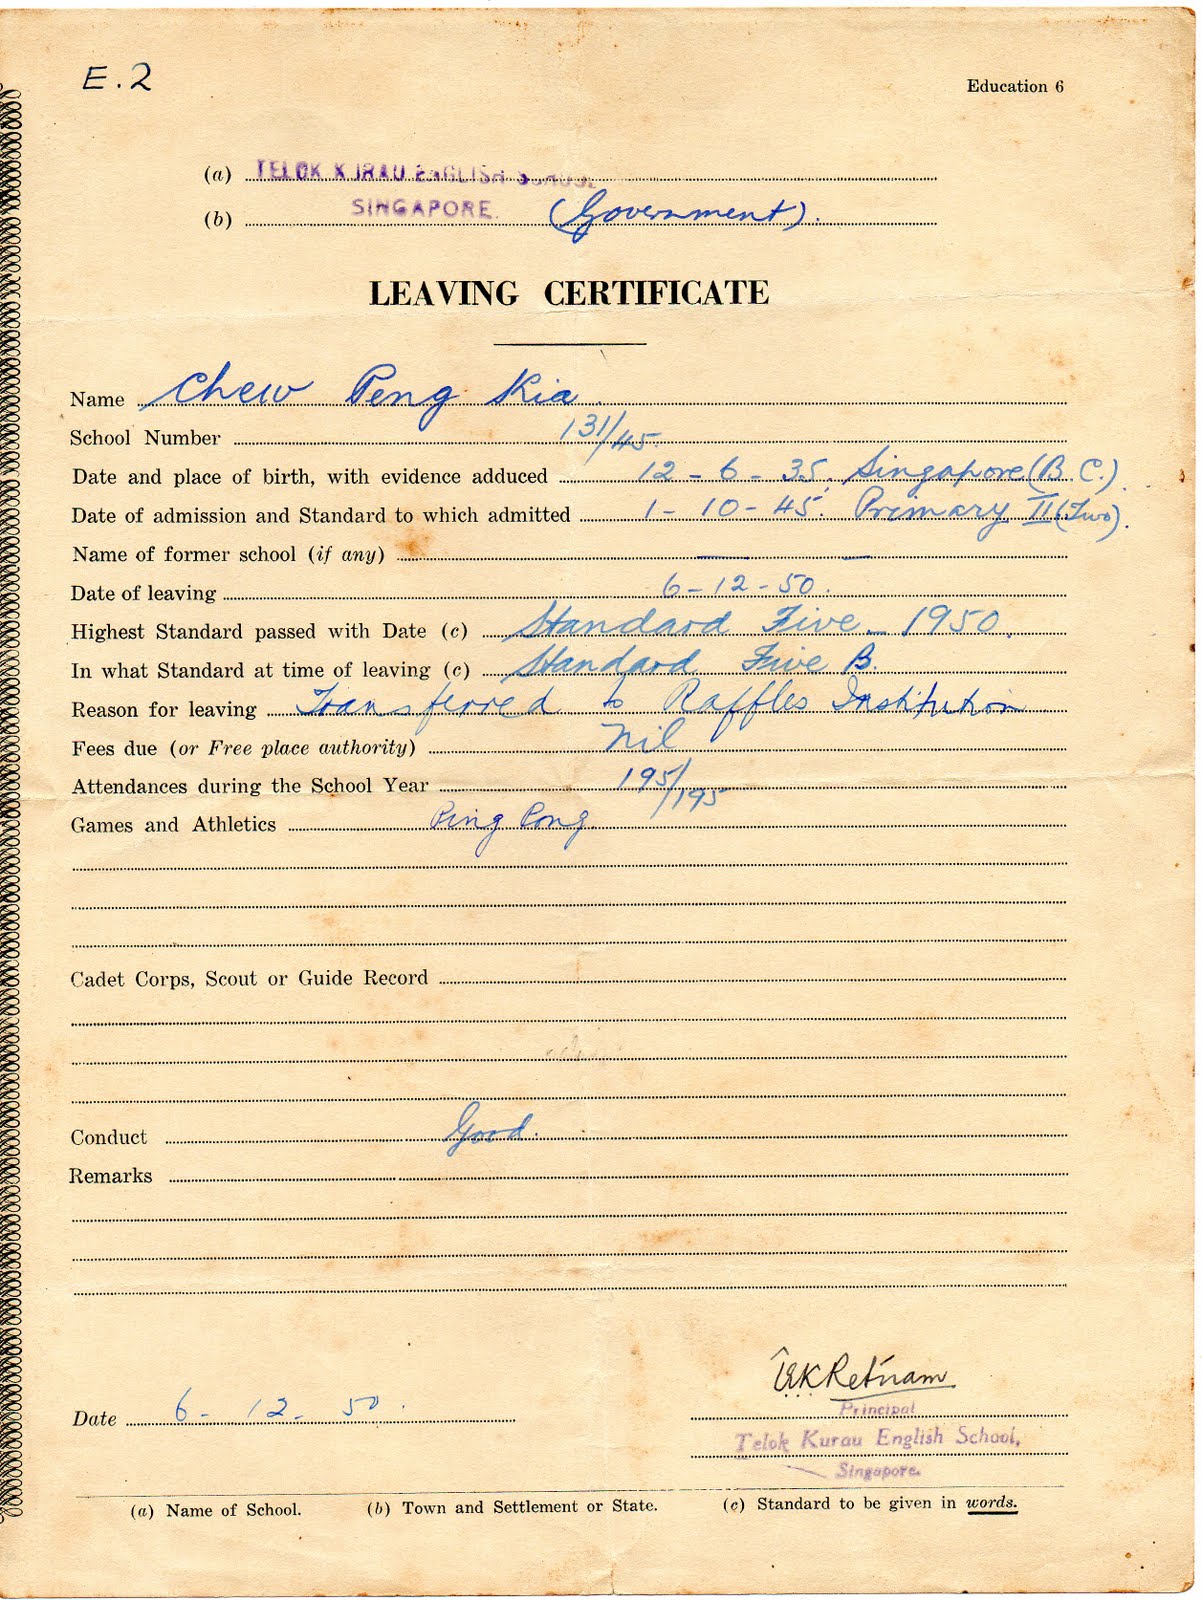 E.2
Education 6
(a) TELOK KURAU ENGLISH SCHOOL
(b) SINGAPORE. (Government).
LEAVING CERTIFICATE
Name Chew Peng Kia.
School Number 131/45.
Date and place of birth, with evidence adduced 12-6-35. Singapore (B.C.).
Date of admission and Standard to which admitted 1-10-45. Primary II (Two).
Name of former school (if any) — —
Date of leaving 6-12-50.
Highest Standard passed with Date (c) Standard Five - 1950.
In what Standard at time of leaving (c) Standard Five B.
Reason for leaving Transferred to Raffles Institution
Fees due (or Free place authority) Nil
Attendances during the School Year 195/195
Games and Athletics Ping Pong.
Cadet Corps, Scout or Guide Record
Conduct Good.
Remarks
Retnam
Date 6-12-50.
Principal
Telok Kurau English School,
Singapore.
(a) Name of School. (b) Town and Settlement or State. (c) Standard to be given in words.